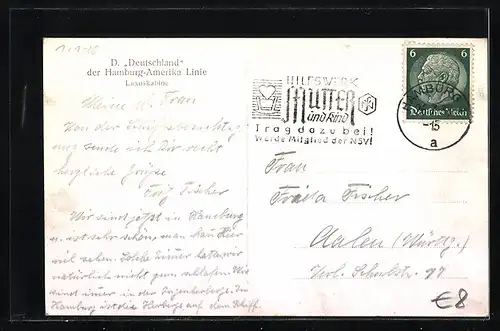 1.1.-15
D. „Deutschland“
der Hamburg-Amerika Linie
Luxuskabine
Meine l. Frau
Von der Schiffsbesichtg.
aus sende ich Dir recht
herzliche Grüße
Fritz Fischer
Wir sind jetzt in Hamburg
u. ist sehr schön, man kann hier
viel sehen. Solche Zimmer haben wir
natürlich nicht zum schlafen. Wir
sind immer in der Jugendherberge. In
Hamburg ist die Herberge auf dem Schiff.
HILFSWERK
MUTTER
und Kind
Trag dazu bei!
Werde Mitglied der NSV!
HAMBURG
-15
a
6 6
Deutsches Reich
Frau
Frida Fischer
Aalen (Württg.)
Schulstr.
€8